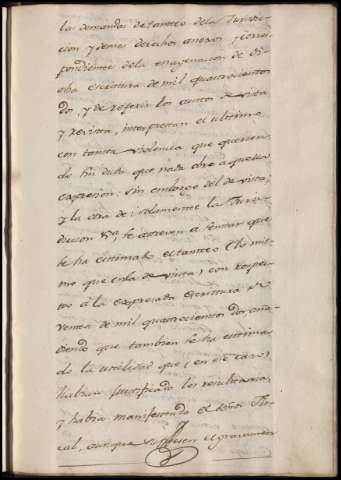 las demandas de tanteo de la Jurisdic-
cion y demas derechos anexos y corres-
pondiente de la enagenacion de di-
cha escritura de mil quatrocientos
dos, y de referir los autos de vista
y revista, interpretan el ultimo
con tanta violencia que querien-
do sin duda que nada obre aquella
expresion: sin embargo del de vista;
y la otra de: solamente la Juris-
diccion &a, se atreven a sentar que
se ha estimado el tanteo lo mis-
mo que en la de vista, con respec-
to á la expresada escritura de
ventea de mil quatrocientos dos aña-
diendo que tambien se ha estima-
do la utilidad que, en ese caso,
habian justificado los
y habia manifestado el señor Fis-
cal, aunque el gravamen